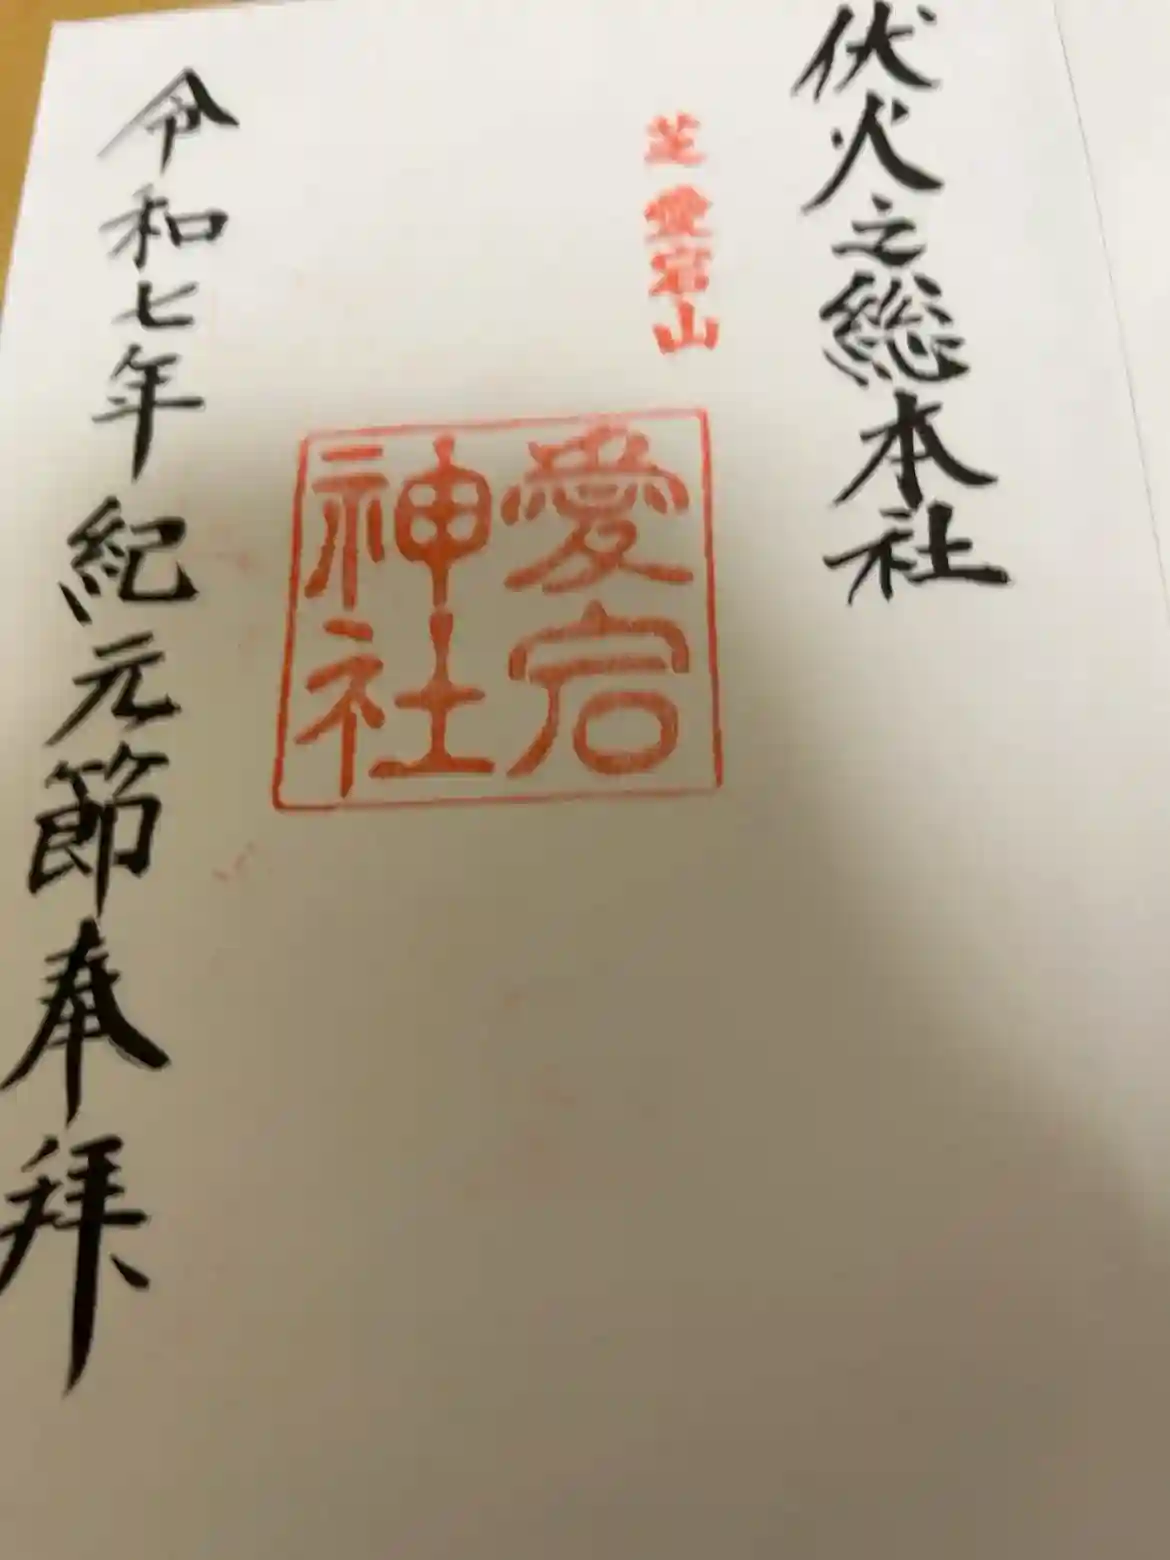 伏火之総本社
芝愛宕山
愛宕
神社
令和七年紀元節奉拝